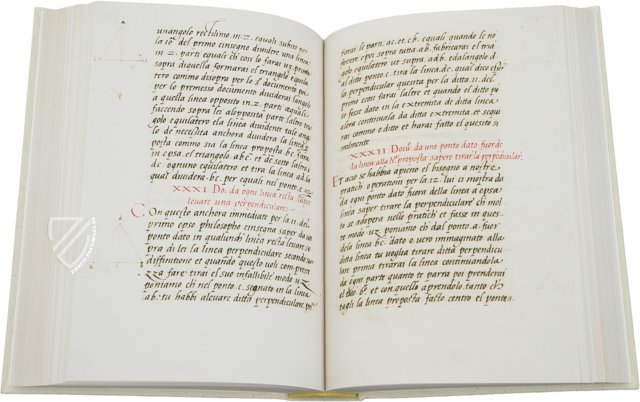 unangolo rectilino in .z. equali subito per
la .io. del primo cinsegno dividere una linea
in .z. parti equali ch con lo farai uz primo
sopra diquella formarai el triangolo equila
tero commo disopra per lo s. documento poi
per lo premesso documento dividerai langolo
a quella linea opposito in .z. parti equali
faccendo sopra lei aloppposita parte laltro trian
golo equilatero et la linea dividente tale ango
lo de necessita anchora dividera la linea
proposta commo sia la linea proposta bc. fami
in epsa el triangolo abc.
dc ognuno equilatero et tire la linea ad.
qual dividera .bc. per equali nel ponto
XXXI Do. da ogni linea recta saper
levare una perpendiculare.
Con questo anchora immediate per la .ii. del
primo epso philosopho cinsegna saper da un
ponto dato in qualunch linea recta levare
pra di lei la linea perpendiculare secondo
diffinitione et quando questo voli com
zza fare tirai el suo infallibile modo
poniamo ch nel ponto .c. segnato en la linea
.ab. tu habbi alzuare ditta perpendiculare
farai le parte .ac. et .cb. equali quando le no
forono. epoi sopra tutta .ab. fabricarai el tria
golo equilatero ut supra .adb. edalangolo .d.
al ditto ponto .c. tira la linea .dc. qual dico ch
la perpendicular quesita per la ditta .ii. del
primo ecosi farai laltre et quando el ditto po
to fosse dato in la extremita de ditta linea
alora continuala da ditta extremita et sequi
camo e ditto et harai fatto el quesito
milmente
XXXII Docu. da uno ponto dato fuor di
la linea alla li. proposta saper tirar la perpendicular.
Et acio se habbia apieno el bisogno a nostre
pratich operationi per la .iz. luci mostra da
ogni ponto dato fuora della linea a epsa
saper tirare la perpendiculare el ch molto
se adopera nelle pratich et fasse in questo
modo uz. poniamo ch dal ponto .a. fuor
della linea .bc. dato o uero immaginato alla
ditta linea tu voglia tirare ditta perpendiculare
primo tirarai la linea continuandola
da ogni parte quanto te parra poi prenderai
el ditto .a. et con quello aprendolo tanto ch
tagli la linea proposta fatto centro el ponto .a.